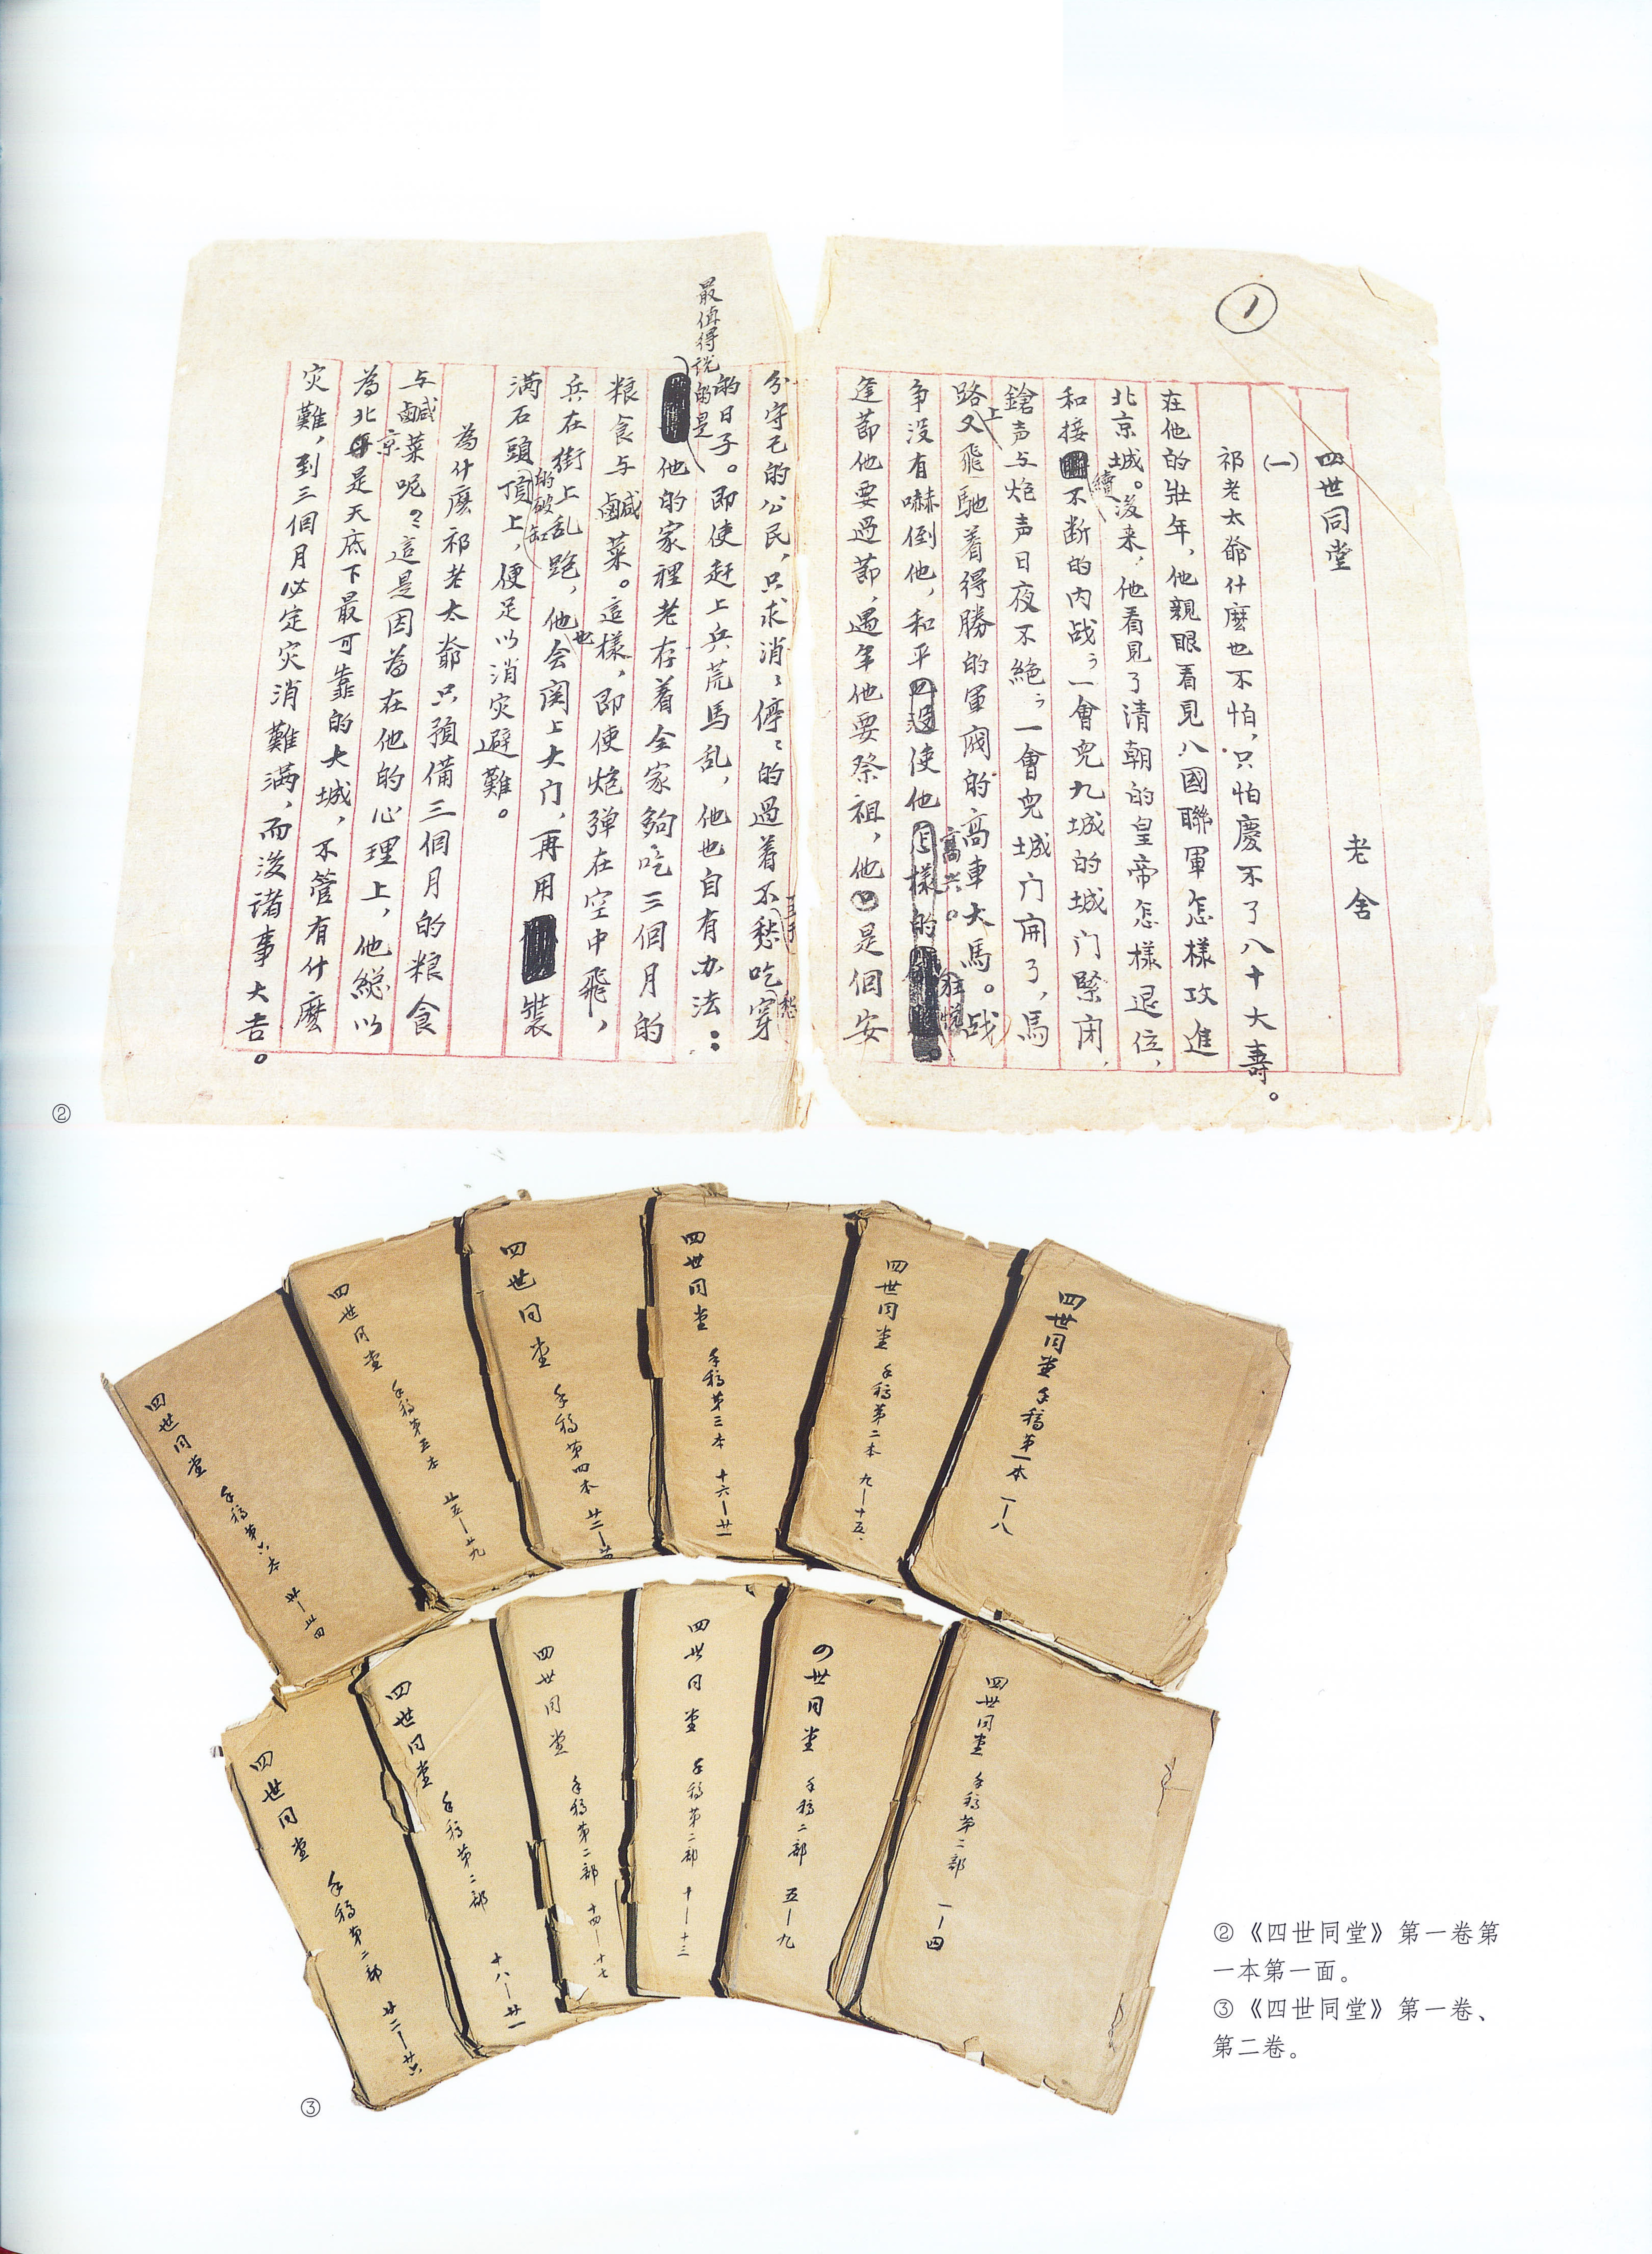 ①
四世同堂
老舍
(一)
祁老太爺什麽也不怕，只怕慶不了八十大壽。
在他的壯年，他親眼看見八國聯軍怎樣攻進
北京城。後来，他看見了清朝的皇帝怎樣退位，
和接續不断的内战；一會兒九城的城门緊闭，
鎗声与炮声日夜不絶；一會兒城门開了，馬
路上又飛馳着得勝的軍阀的高車大馬。战
争没有嚇倒他，和平使他高兴。
逢節他要過節，遇年他要祭祖，他是個安
分守己的公民，只求消消停停的過着不至于愁吃愁穿
的日子。即使赶上兵荒馬乱，他也自有办法：
最值得说的是他的家裡老存着全家夠吃三個月的
粮食与鹹菜。這樣，即使炮弹在空中飛，
兵在街上乱跑，他也会関上大门，再用装
满石頭的破缸顶上，便足以消灾避難。
為什麽祁老太爺只預備三個月的粮食
与鹹菜呢？這是因為在他的心理上，他総以
為北京是天底下最可靠的大城，不管有什麽
灾難，到三個月必定灾消難满，而後诸事大吉。
②
四世同堂 手稿第一本 一—八
四世同堂 手稿第二本 九—十五.
四世同堂 手稿第三本 十六—廿一
四世同堂 手稿第四本 廿二—廿四
四世同堂 手稿第五本 廿五—廿九
四世同堂 手稿第六本 卅—卅四
四世同堂 手稿第二部 一—四
四世同堂 手稿二部 五—九
四世同堂 手稿第二部 十—十三
四世同堂 手稿第二部 十四—十七
四世同堂 手稿第二部 十八—廿一
四世同堂 手稿第二部 廿二—廿六
③
②《四世同堂》第一卷第
一本第一面。
③《四世同堂》第一卷、
第二卷。